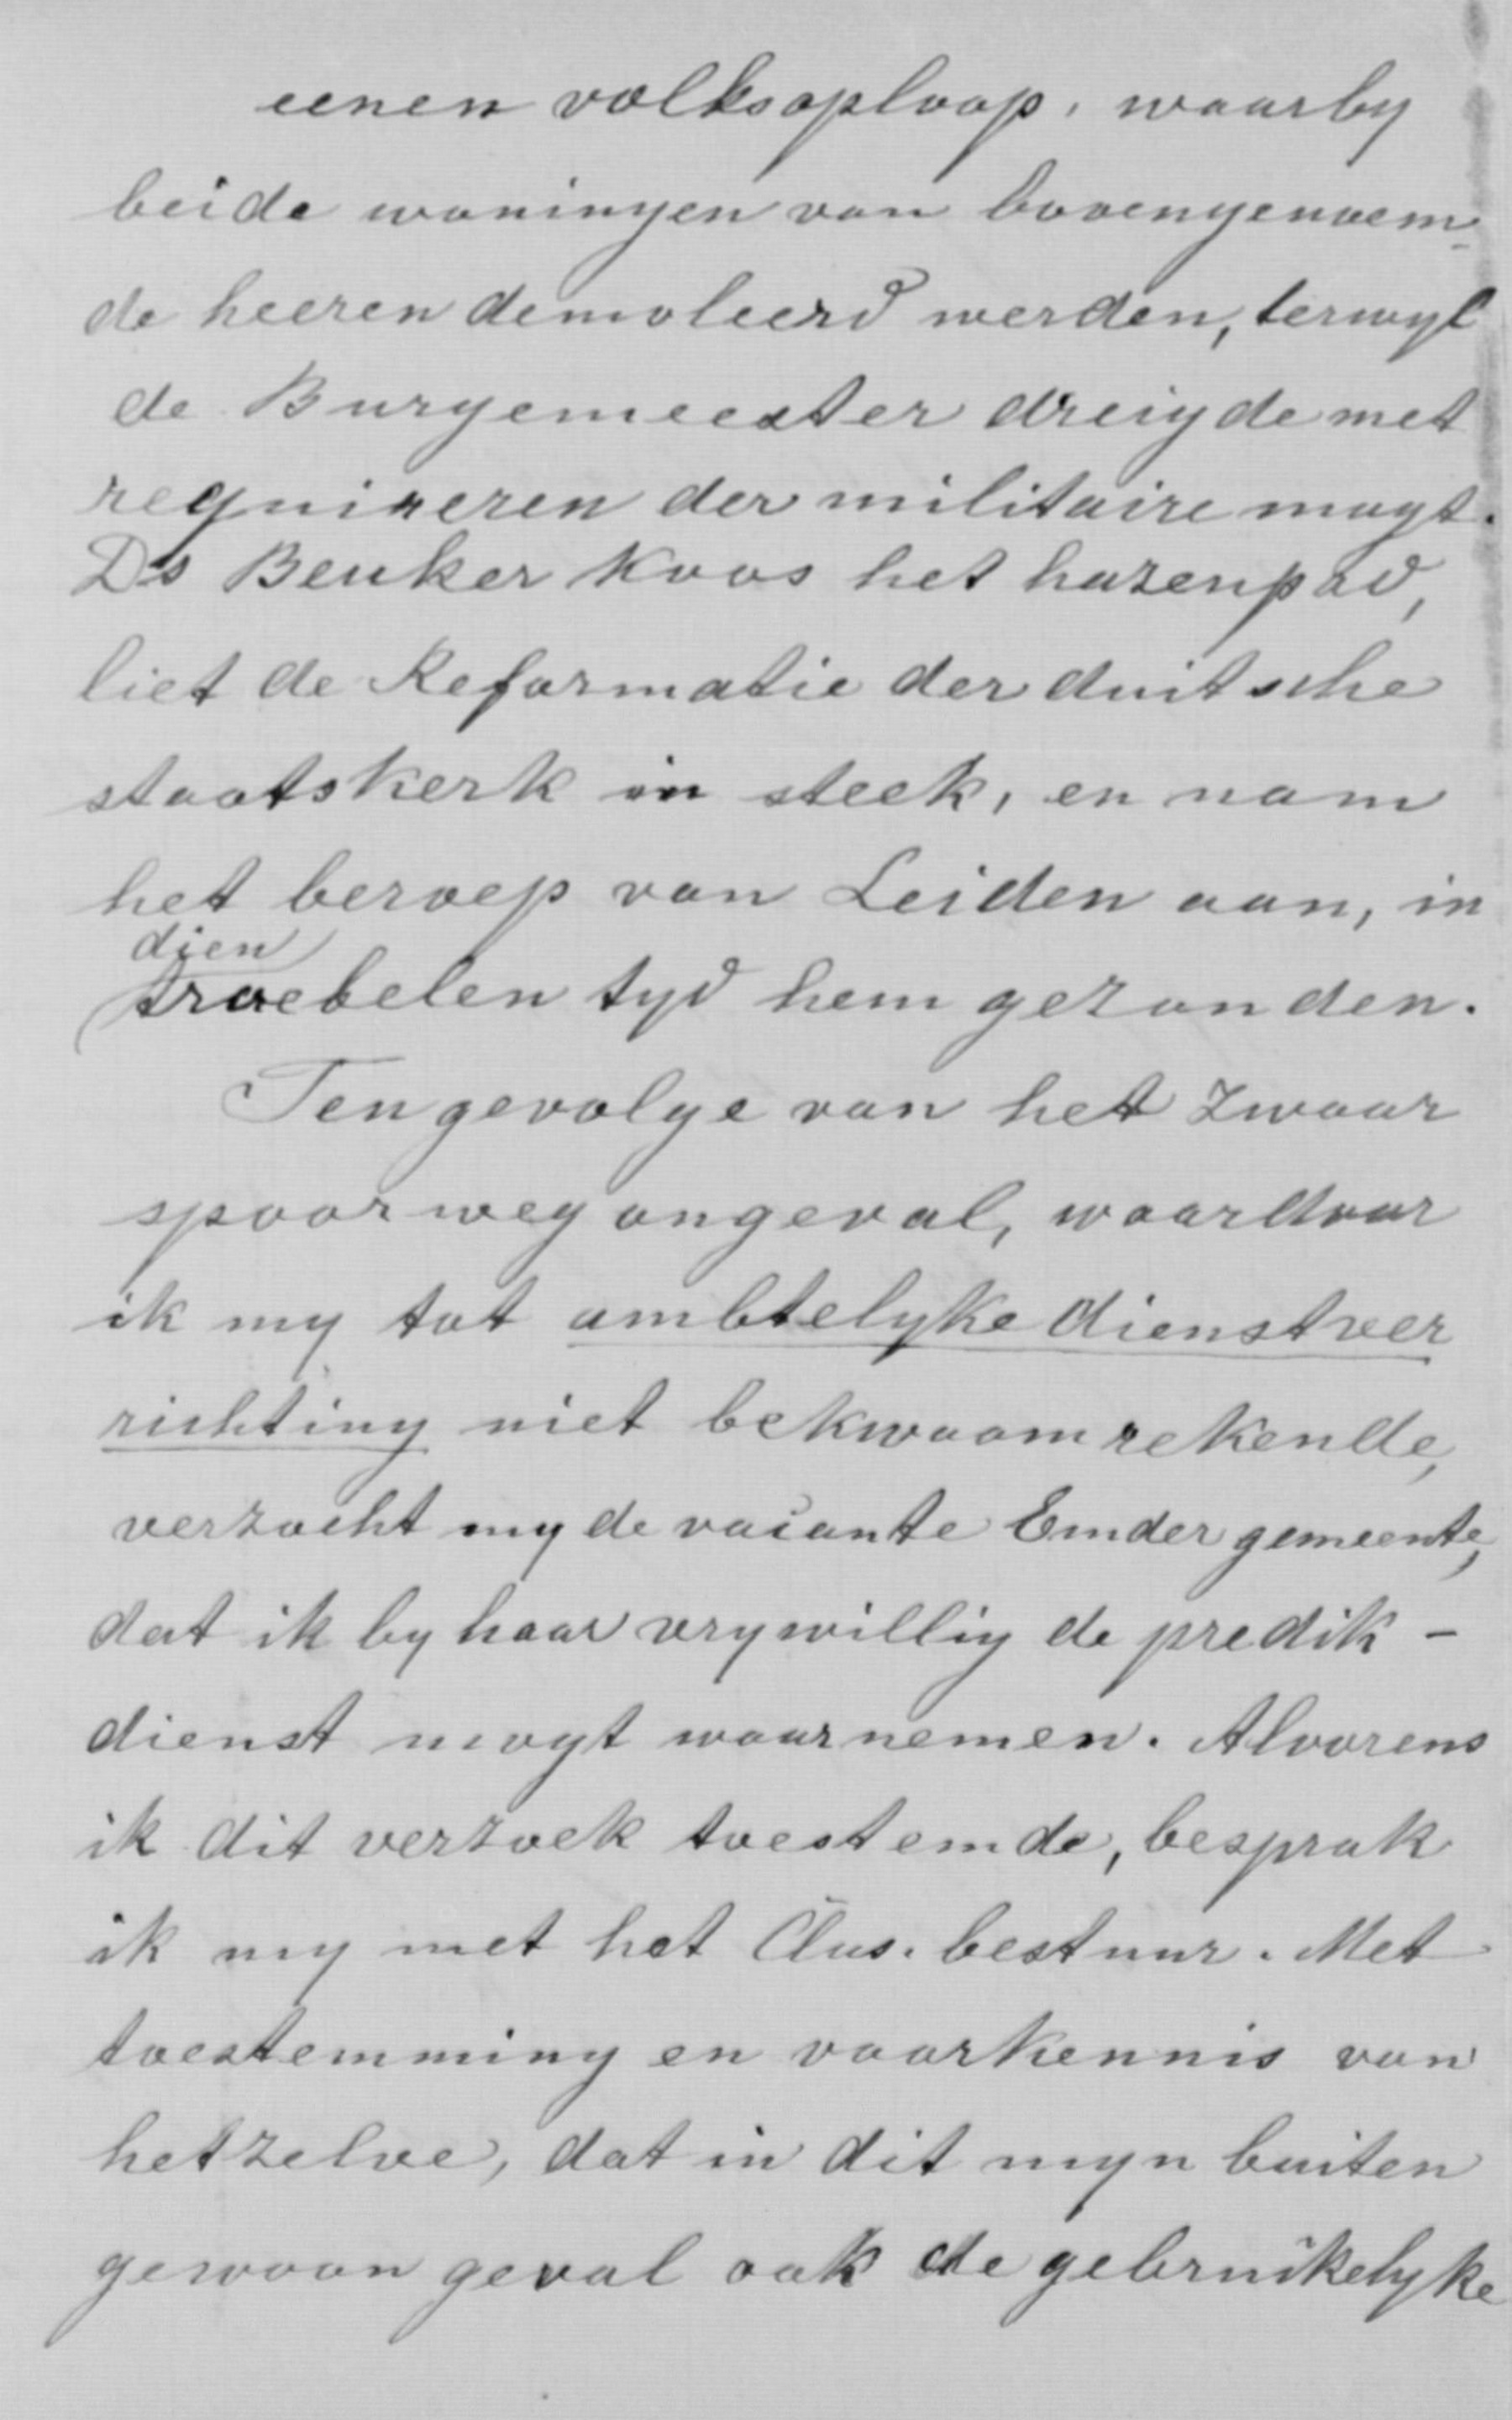 eenen volksoploop, waarby
beide woningen van bovengenoem-
de heeren demoleerd werden, terwyl
de Burgemeester dreigde met
requireren der militaire magt.
Ds Beuker koos het hazenpad,
liet de Reformatie der duitsche
staatskerk in steek, en nam
het beroep van Leiden aan, in
dien
troebelen tyd hem gezonden.
Tengevolge van het zwaar
spoorwegongeval, waardoor
ik my tot ambtelyke dienstver
richting niet bekwaam rekende,
verzocht my de vacante Emder gemeente,
dat ik by haar vrywillig de predik-
dienst mogt waarnemen. Alvorens
ik dit verzoek toestemde, besprak
ik my met het Clas. bestuur. Met
toestemming en voorkennis van
hetzelve, dat in dit myn buiten
gewoon geval ook de gebruikelyke